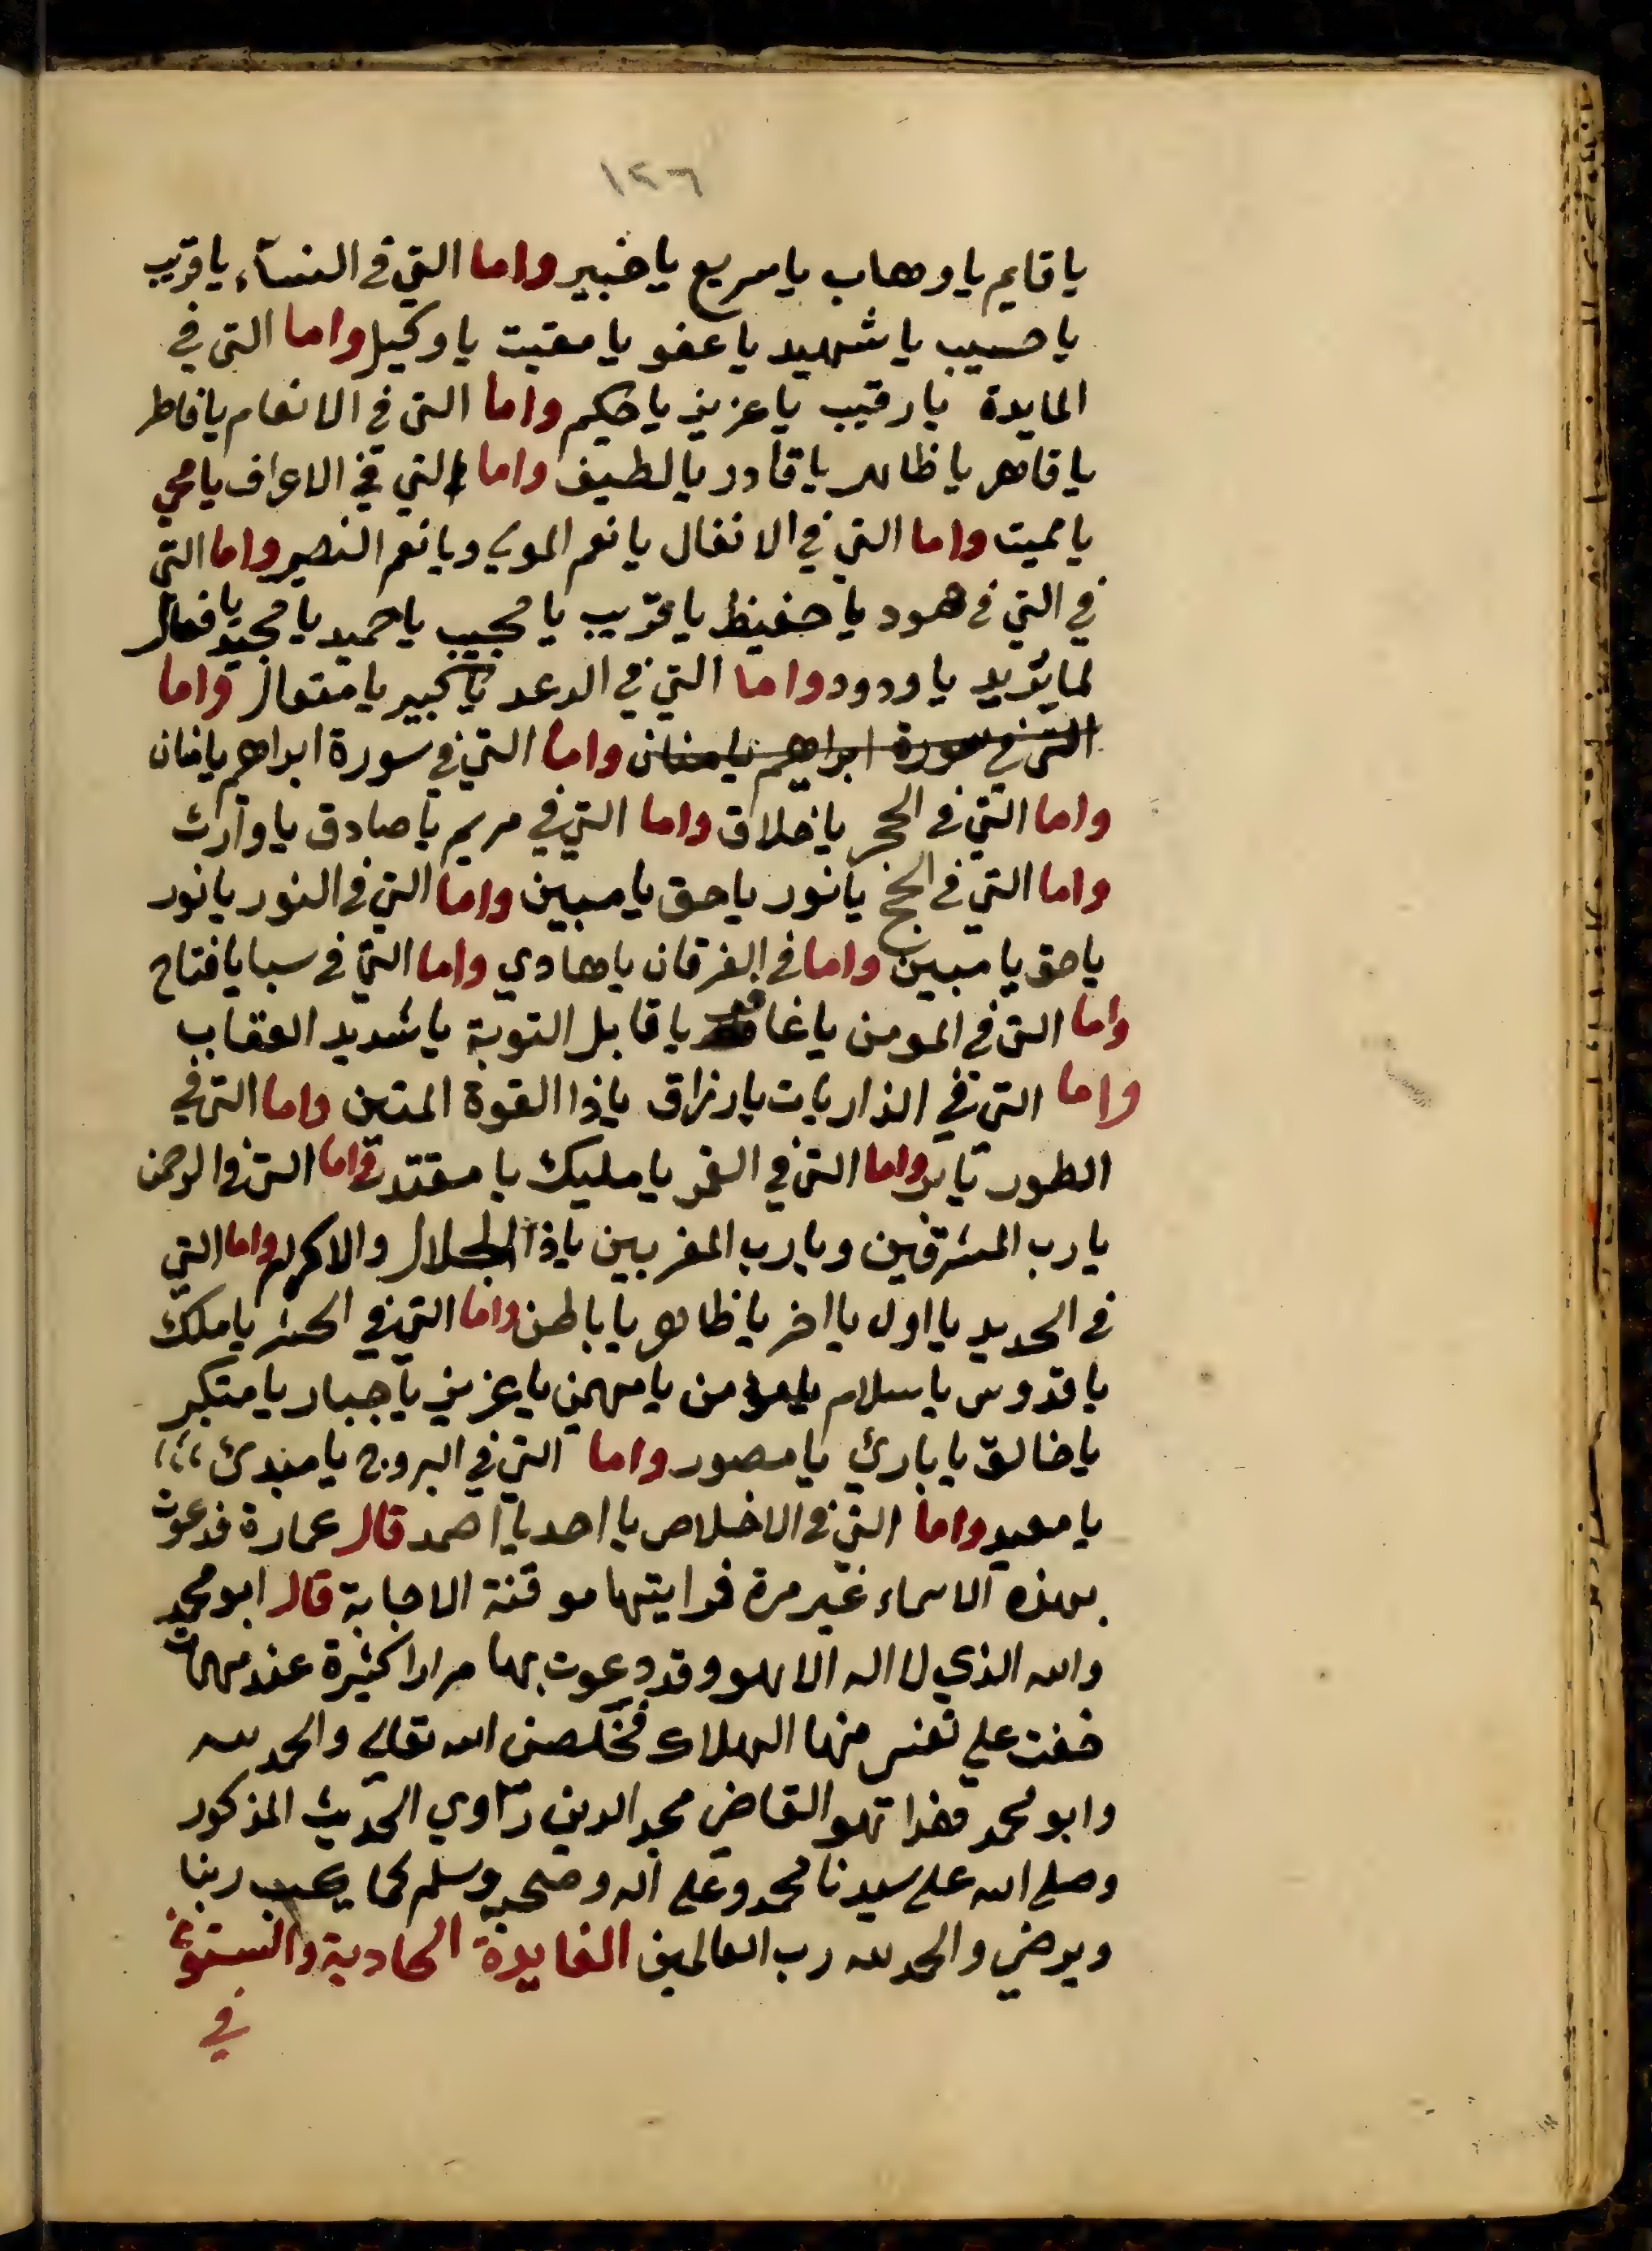 ١٢٦
يا قايم يا وهاب يا سريع يا خبير واما التي في النساء يا قريب
يا حسيب يا شهيد يا عفو يا مقيت يا وكيل واما التي في
المايدة يا رقيب يا عزيز يا حكيم واما التي في الانعام يا فاطر
يا قاهر يا ظاهر يا قادر يا لطيف واما التي في الاعراف يا محي
يا مميت واما التي في الانفال يا نعم المولى ويا نعم النصير واما التي
في التي في هود يا حفيظ يا قريب يا مجيب يا حميد يا مجيد يا فعال
لما يريد يا ودود واما التي في الرعد يا كبير يا متعال واما
التي في سورة ابراهيم يا منان واما التي في سورة ابراهيم يا منان
واما التي في الحجر يا خلاق واما التي في مريم يا صادق يا وارث
واما التي في الحج يا نور يا حق يا مبين واما التي في النور يا نور
يا حق يا مبين واما في الفرقان يا هادي واما التي في سبا يا فتاح
واما التي في المومن يا غافر يا قابل التوبة يا شديد العقاب
واما التي في الذاريات يا رزاق يا ذا القوة المتين واما التي في
الطور يا بر واما التي في القمر يا مليك يا مقتدر واما التي في الرحمن
يا رب المشرقين ويا رب المغربين يا ذا الجلال والاكرام واما التي
في الحديد يا اول يا اخر يا ظاهر يا باطن واما التي في الحشر يا ملك
يا قدوس يا سلام يا مؤمن يا مهيمن يا عزيز يا جبار يا متكبر
يا خالق يا بارئ يا مصور واما التي في البروج يا مبدئ
يا معيد واما التي في الاخلاص يا احد يا صمد قال عمارة فدعوت
بهذه الاسماء غير مرة فرايتها موقنة الاجابة قال ابو محمد
والله الذي لا اله الا هو وقد دعوت بها مرارا كثيرة عند مهمات
خفت على نفسي منها الهلاك فخلصني الله تعالى والحمد لله
وابو محمد هذا هو القاضي مجد الدين راوي الحديث المذكور
وصلى الله على سيدنا محمد وعلى اله وصحبه وسلم كما يحب ربنا
ويرضى والحمد لله رب العالمين الفايدة الحادية والستون
في